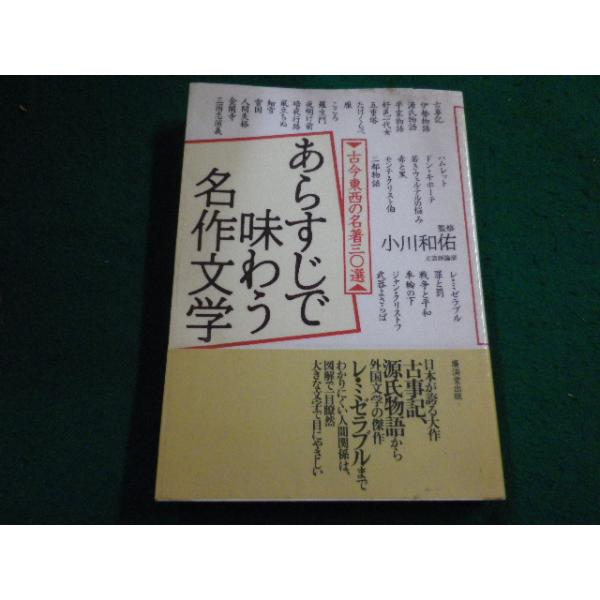 古事記
伊勢物語
源氏物語
平家物語
好色一代女
五重塔
たけくらべ
雁
こころ
羅生門
夜明け前
暗夜行路
風立ちぬ
細雪
雪国
人間失格
金閣寺
三国志演義
ハムレット
ドン・キホーテ
若きウェルテルの悩み
赤と黒
モンテ・クリスト伯
二都物語
レ・ミゼラブル
罪と罰
戦争と平和
車輪の下
ジャン・クリストフ
武器よさらば
▼古今東西の名著三〇選▲
監修
小川和佑
文芸評論家
あらすじで
味わう
名作文学
廣済堂出版
日本が誇る大作
古事記、
源氏物語から
外国文学の傑作
レ・ミゼラブルまで
わかりにくい人間関係は、
図解で一目瞭然
大きな文字で目にやさしい